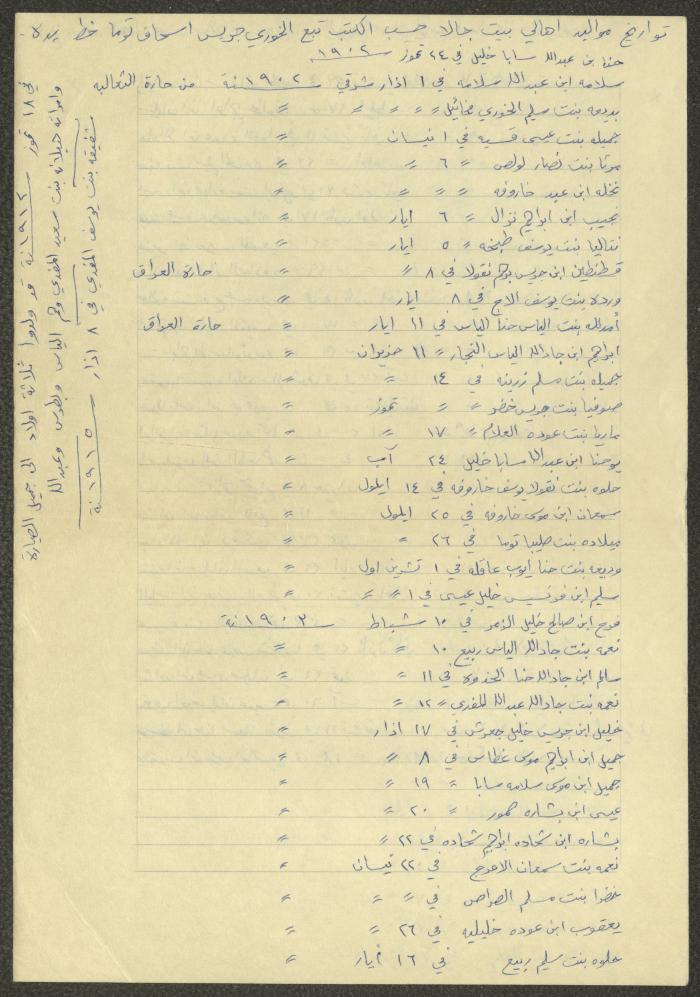 تواريخ مواليد اهالي بيت جالا حسب الكتب تبع الخوري جريس اسحاق توما خط يده.
حنا بن عبدالله سابا خليل في ٢٤ تموز سنة ١٩٠٢
سلامه ابن عبدالله سلامه في ١ اذار شرقي سنة ١٩٠٢ من حارة الثعالبه
بديعه بنت سليم الخوري مخائيل " " " " "
جميله بنت عيسى قسيه في ١ نيسان "
مرثا بنت نصار لولص " ٦ " "
نخله ابن عبد خاروفه " " " "
نجيب ابن ابراهيم نزال " ٦ ايار "
نتاليا بنت يوسف طبخه " ٥ ايار "
قسطنطين ابن جريس برهم نقولا في ٨ " " حارة العراق
ورده بنت يوسف الاع‍رج في ٨ ايار "
أمدلله بنت الياس حنا الياس في ١١ ايار " حارة العراق
ابراهيم ابن جادالله الياس النجار " ١١ حزيران "
جميله بنت مسلم زرينه في ١٤ " "
صوفيا بنت جريس خضر " " تموز "
ماريا بنت عوده العلام " ١٧ " "
يوحنا ابن عبدالله سابا خليل ٢٤ آب "
حلوه بنت نقولا يوسف خاروفه في ١٤ ايلول "
سمعان ابن موسى خاروفه في ٢٥ ايلول "
ميلاده بنت صليبا توما في ٢٦ " "
وديعه بنت حنا أيوب عاقله في ١ تشرين اول "
سليم ابن فرنسيس خليل عيسى في ١ " " "
فرح ابن صالح خليل الزمر في ١٠ شباط سنة ١٩٠٣
نعمه بنت جادالله الياس ربيع ١٠ " "
سالم ابن جادالله حنا في ١١ " "
نعمه بنت جادالله عبدالله المغدي " ١٢ " "
خليل ابن جريس خليل جعرش في ١٧ اذار "
جميل ابن ابراهيم موسى غطاس في ٨ " "
جميل ابن موسى سلامه سابا " ١٩ " "
عيسى ابن بشاره حمور " ٢٠ " "
بشاره ابن شحاده ابراهيم شحاده في ٢٢ " "
نعمه بنت سمعان الاعرج في ٢٢ نيسان "
خضرا بنت مسلم الصراص في " " "
يعقوب ابن عوده خليليه في ٢٦ " "
حلوه بنت سليم ربيع في ١٦ أيار "
شفيقه بنت يوسف المغدي في ٨ اذار سنة ١٩١٥
وامرأته جيلانه بنت سعيد المغدي وهم الياس وبطرس وعبدالله
في ١٨ تموز سنة ١٩١٢ قد ولدوا ثلاثة اولاد الى جميل الصياره